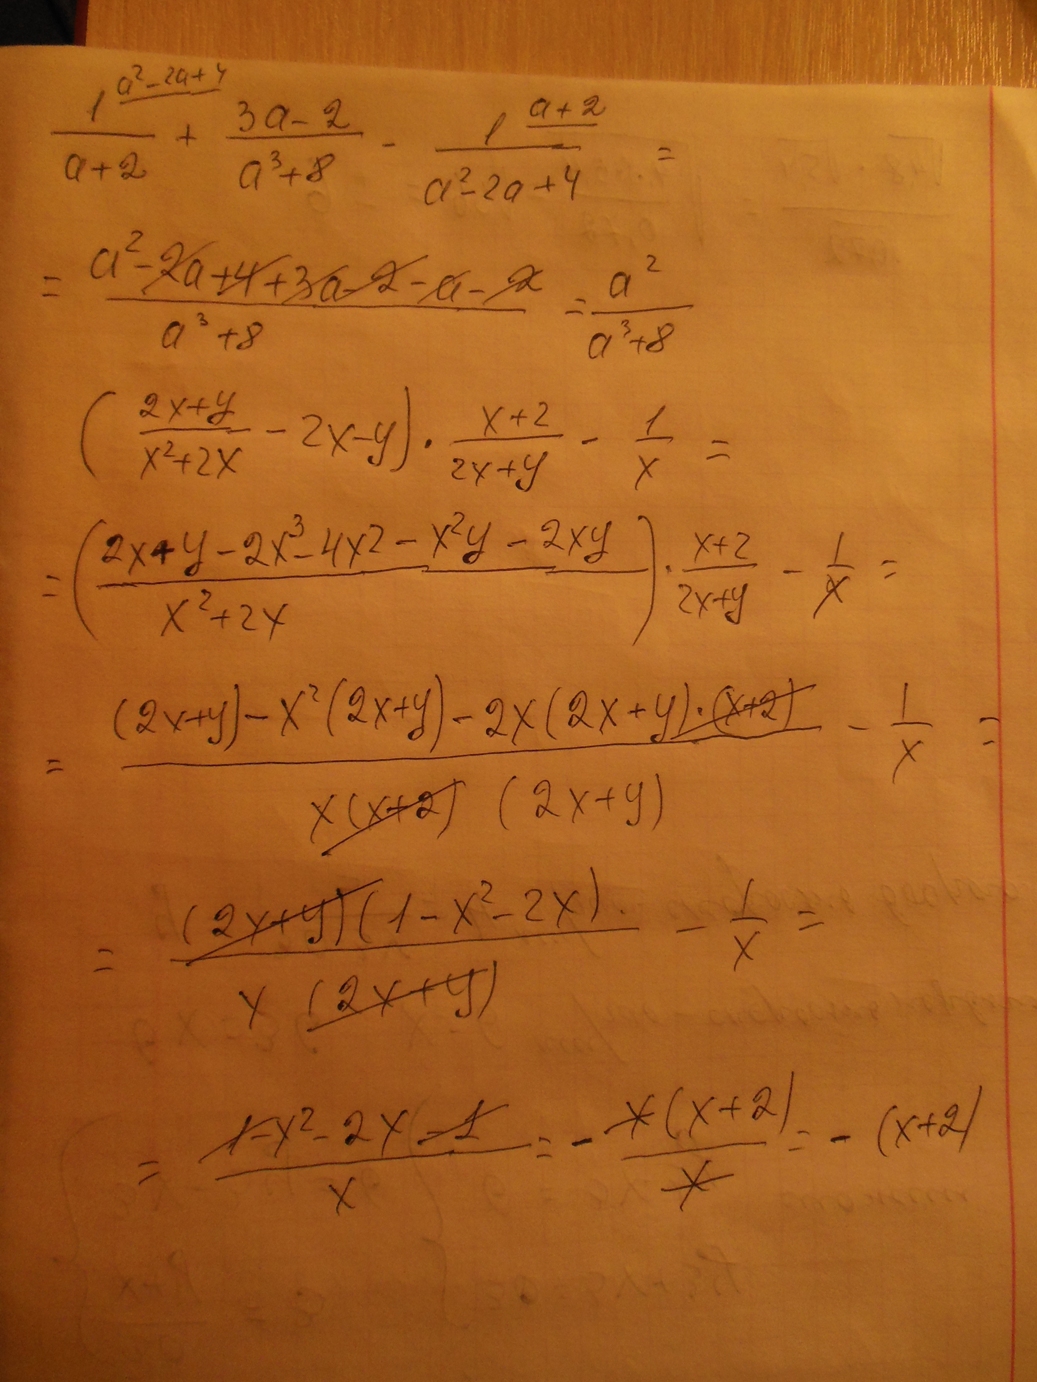 1^(a²-2a+4)/(a+2) + (3a-2)/(a³+8) - 1^(a+2)/(a²-2a+4) =
= (a²-2a+4+3a-2-a-2)/(a³+8) = a²/(a³+8)
((2x+y)/(x²+2x) - 2x-y) · (x+2)/(2x+y) - 1/x =
= ((2x+y-2x³-4x2-x²y-2xy)/(x²+2x)) · (x+2)/(2x+y) - 1/x =
= ((2x+y)-x²(2x+y)-2x(2x+y)·(x+2))/(x(x+2)(2x+y)) - 1/x =
= ((2x+y)(1-x²-2x)·)/(x(2x+y)) - 1/x =
= (1-x²-2x-1)/x = - x(x+2)/x = - (x+2)